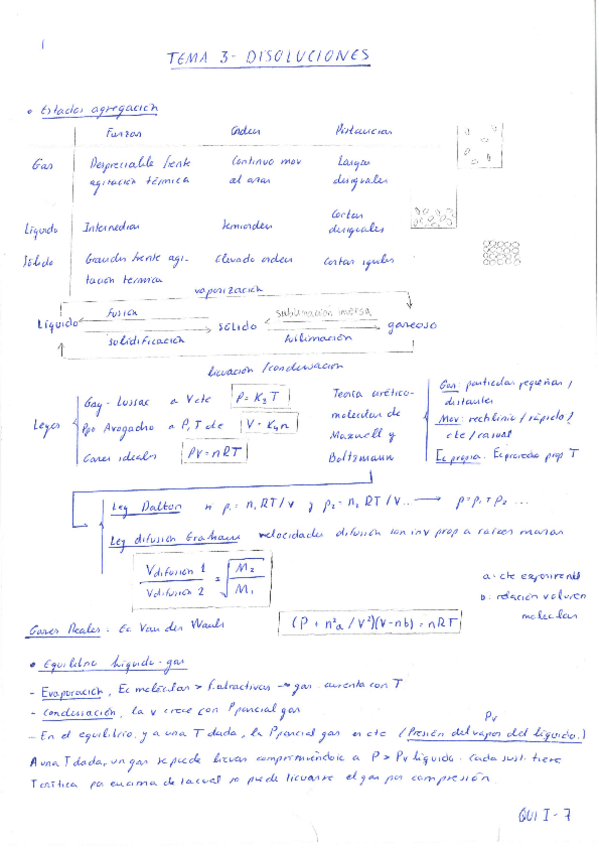 1
TEMA 3- DISOLUCIONES
• Estados agregación
Fuerzas Orden Distancias
Gas Despreciable frente Continuo mov Largas
agitación térmica al azar desiguales
Líquido Intermedias Semiorden Cortas desiguales
Sólido Grandes frente agi- Elevado orden Cortas iguales
tación termica
vaporización
fusión sublimación inversa
Líquido SÓLIDO gaseoso
solidificación sublimación
licuación / condensación
Leyes
Gay-Lussac a V cte P = K3 T
Ppo Avogadro a P, T cte V = K4 n
Gases ideales PV = nRT
Teoría cinético-
molecular de
Maxwell y
Boltzmann
Gas: particulas pequeñas /
distantes
Mov: rectilíneo / rápido /
cte / casual
Ec propia. Ec promedio prop T
Ley Dalton p1 = n1 RT/V y p2 = n2 RT/V.. → p = p1 + p2 ...
Ley difusión Graham velocidades difusión son inv prop a raíces masas
Vdifusión 1 / Vdifusión 2 = √ M2 / M1
a: cte experiment
b: relación volumen
moleculas
Gases Reales: Ec Van der Waals (P + n²a / V²)(V-nb) = nRT
• Equilibrio líquido-gas
- Evaporación, Ec moléculas > F. atractivas → gas. aumenta con T
- Condensación, la v crece con P parcial gas
Pv
- En el equilibrio y a una T dada, la P parcial gas es cte (Presión del vapor del líquido.)
A una T dada, un gas se puede licuar comprimiéndole a P > Pv líquido. Cada sust. tiene
T crítica por encima de la cual no puede licuarse el gas por compresión.
QUI I - 7